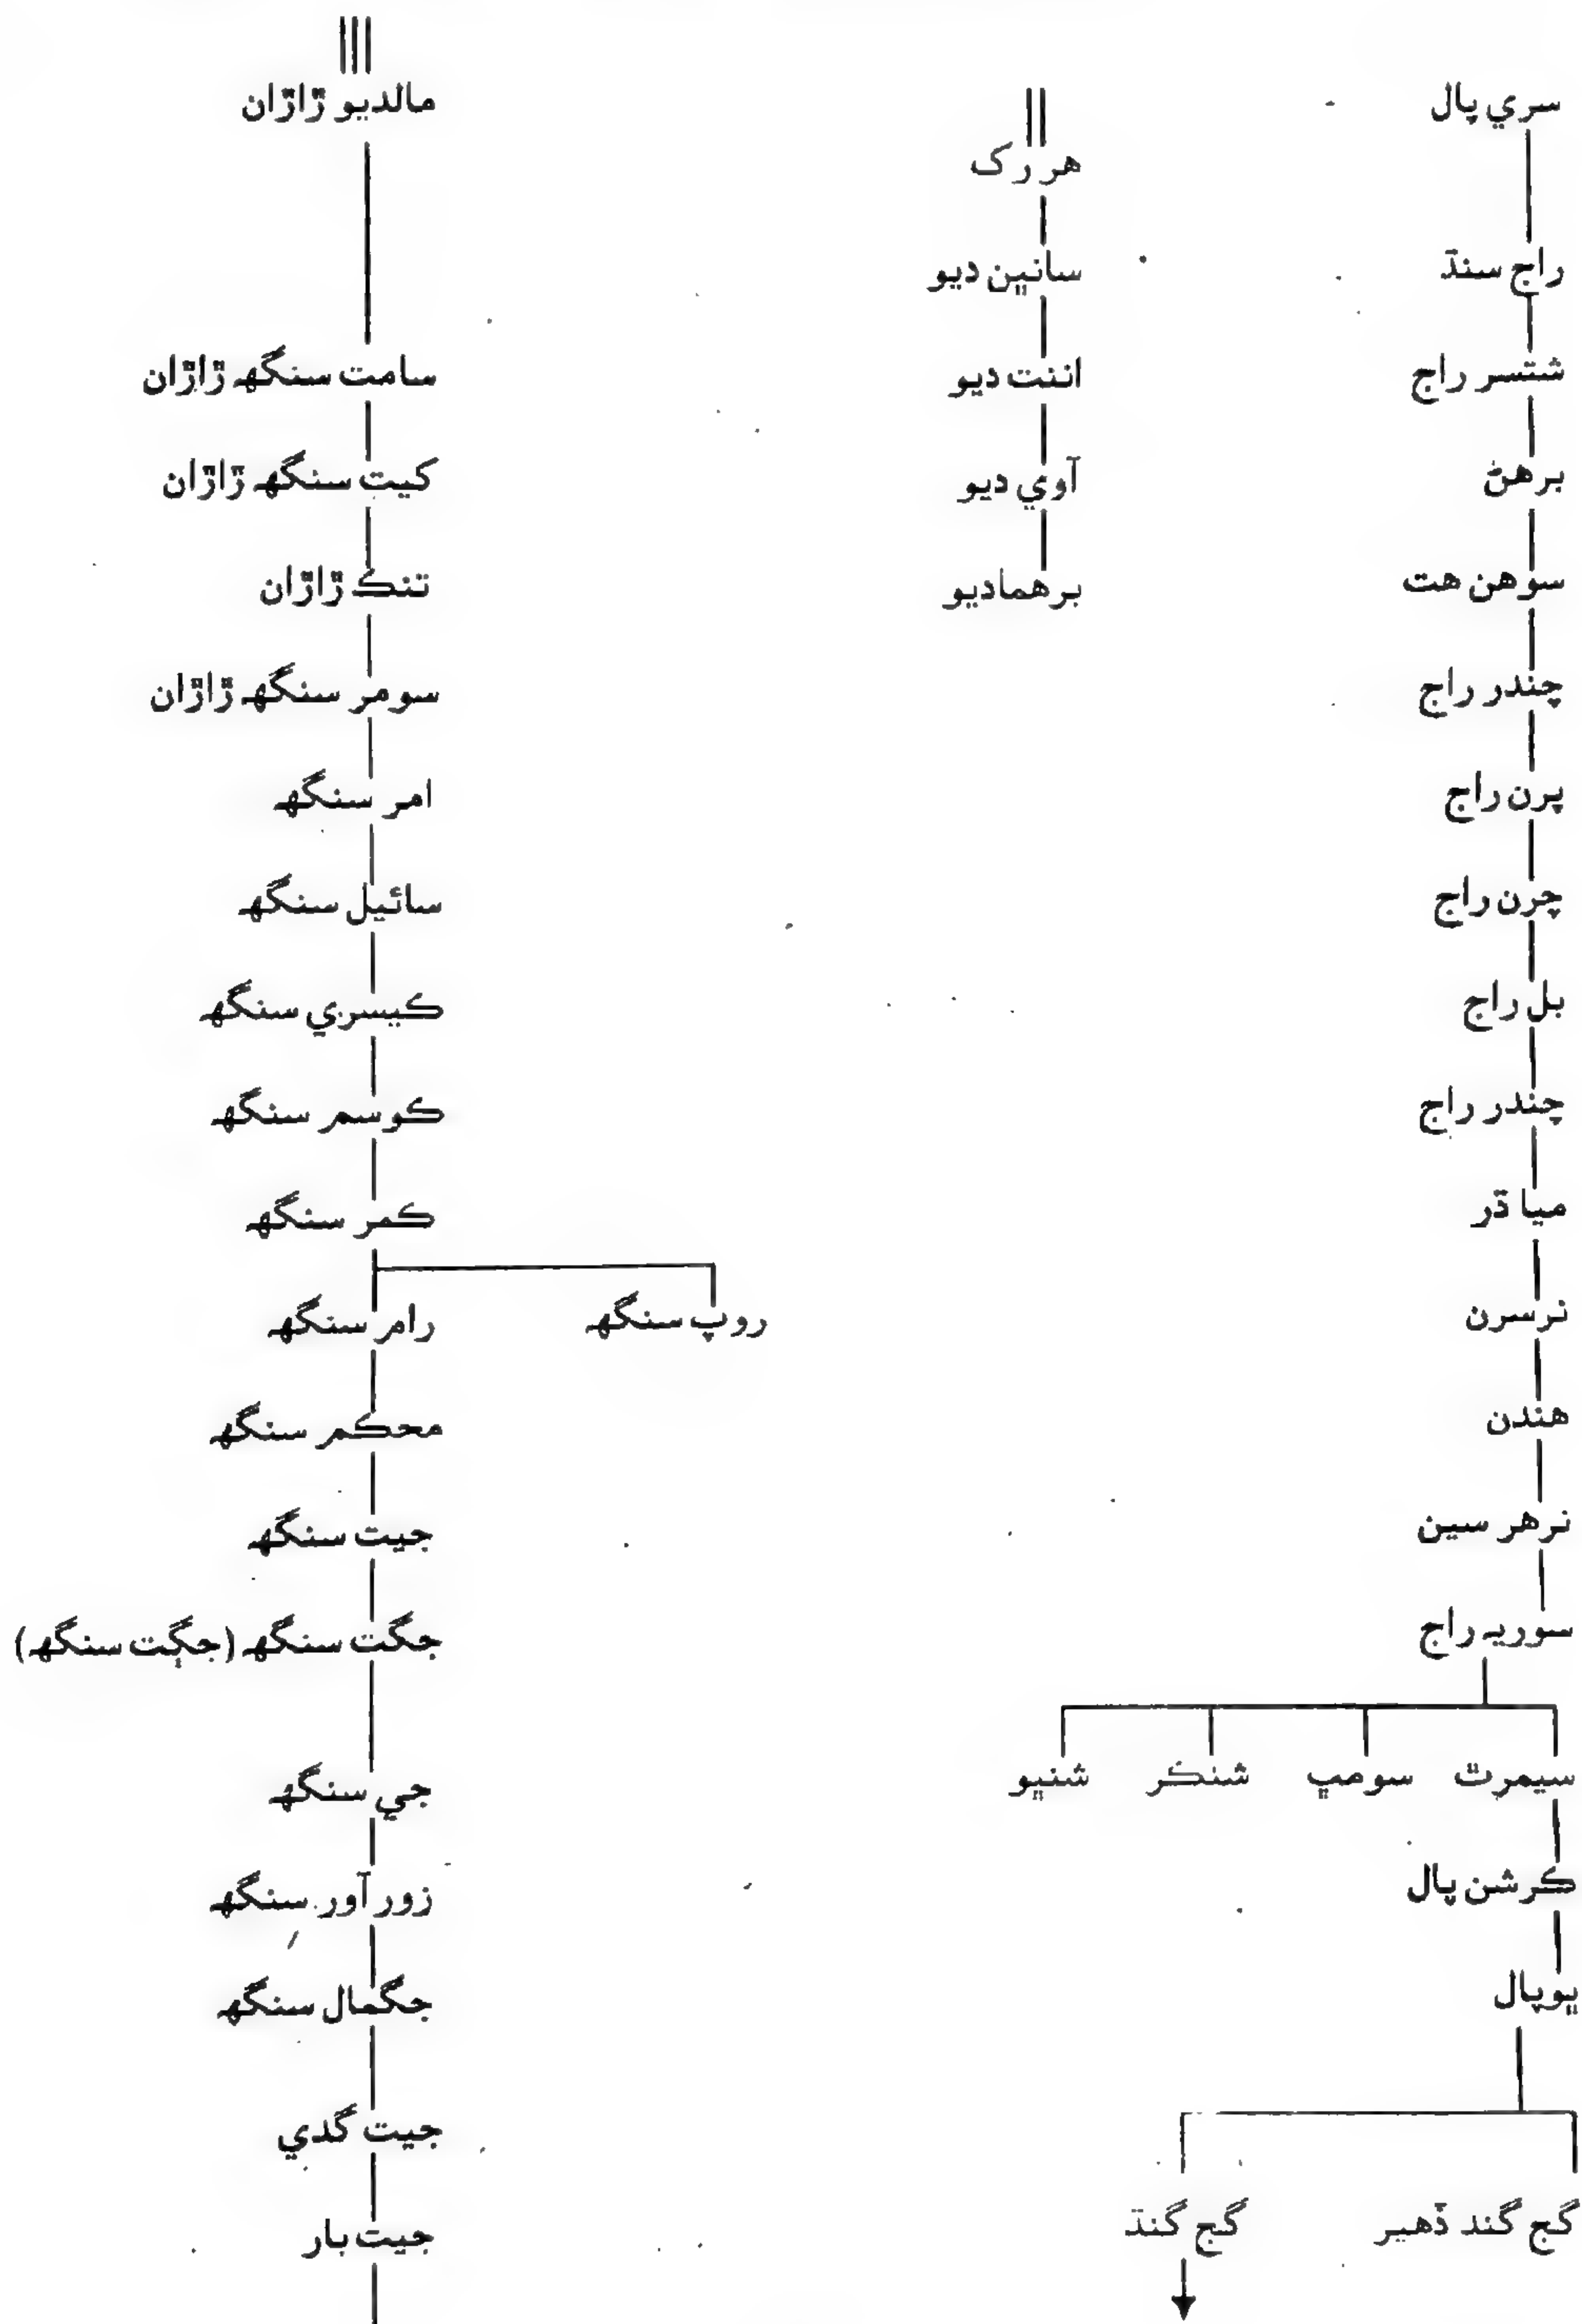 سري پال
راج سنڌ
شتسر راج
برهڻ
سوهن هت
چندر راج
پرن راج
چرن راج
بل راج
چندر راج
ميا ڌر
نرسرن
هندن
نرهر سين
سوريہ راج
سيمرٿ سومپ شنڪر شنڀو
ڪرشن پال
ڀوپال
گج گند ڏهير گج گنڌ
هر رک
سانين ديو
اننت ديو
آوي ديو
برهماديو
مالديو ڙاڙان
سامت سنگهہ ڙاڙان
کيت سنگهہ ڙاڙان
تنڪ ڙاڙان
سومر سنگهہ ڙاڙان
امر سنگهہ
سائيل سنگهہ
ڪيسري سنگهہ
ڪوسم سنگهہ
ڪمر سنگهہ
روپ سنگهہ رام سنگهہ
محڪم سنگهہ
جيت سنگهہ
جگت سنگهہ (جڳت سنگهہ)
جي سنگهہ
زور آور سنگهہ
جگمال سنگهہ
جيت گدي
جيت بار